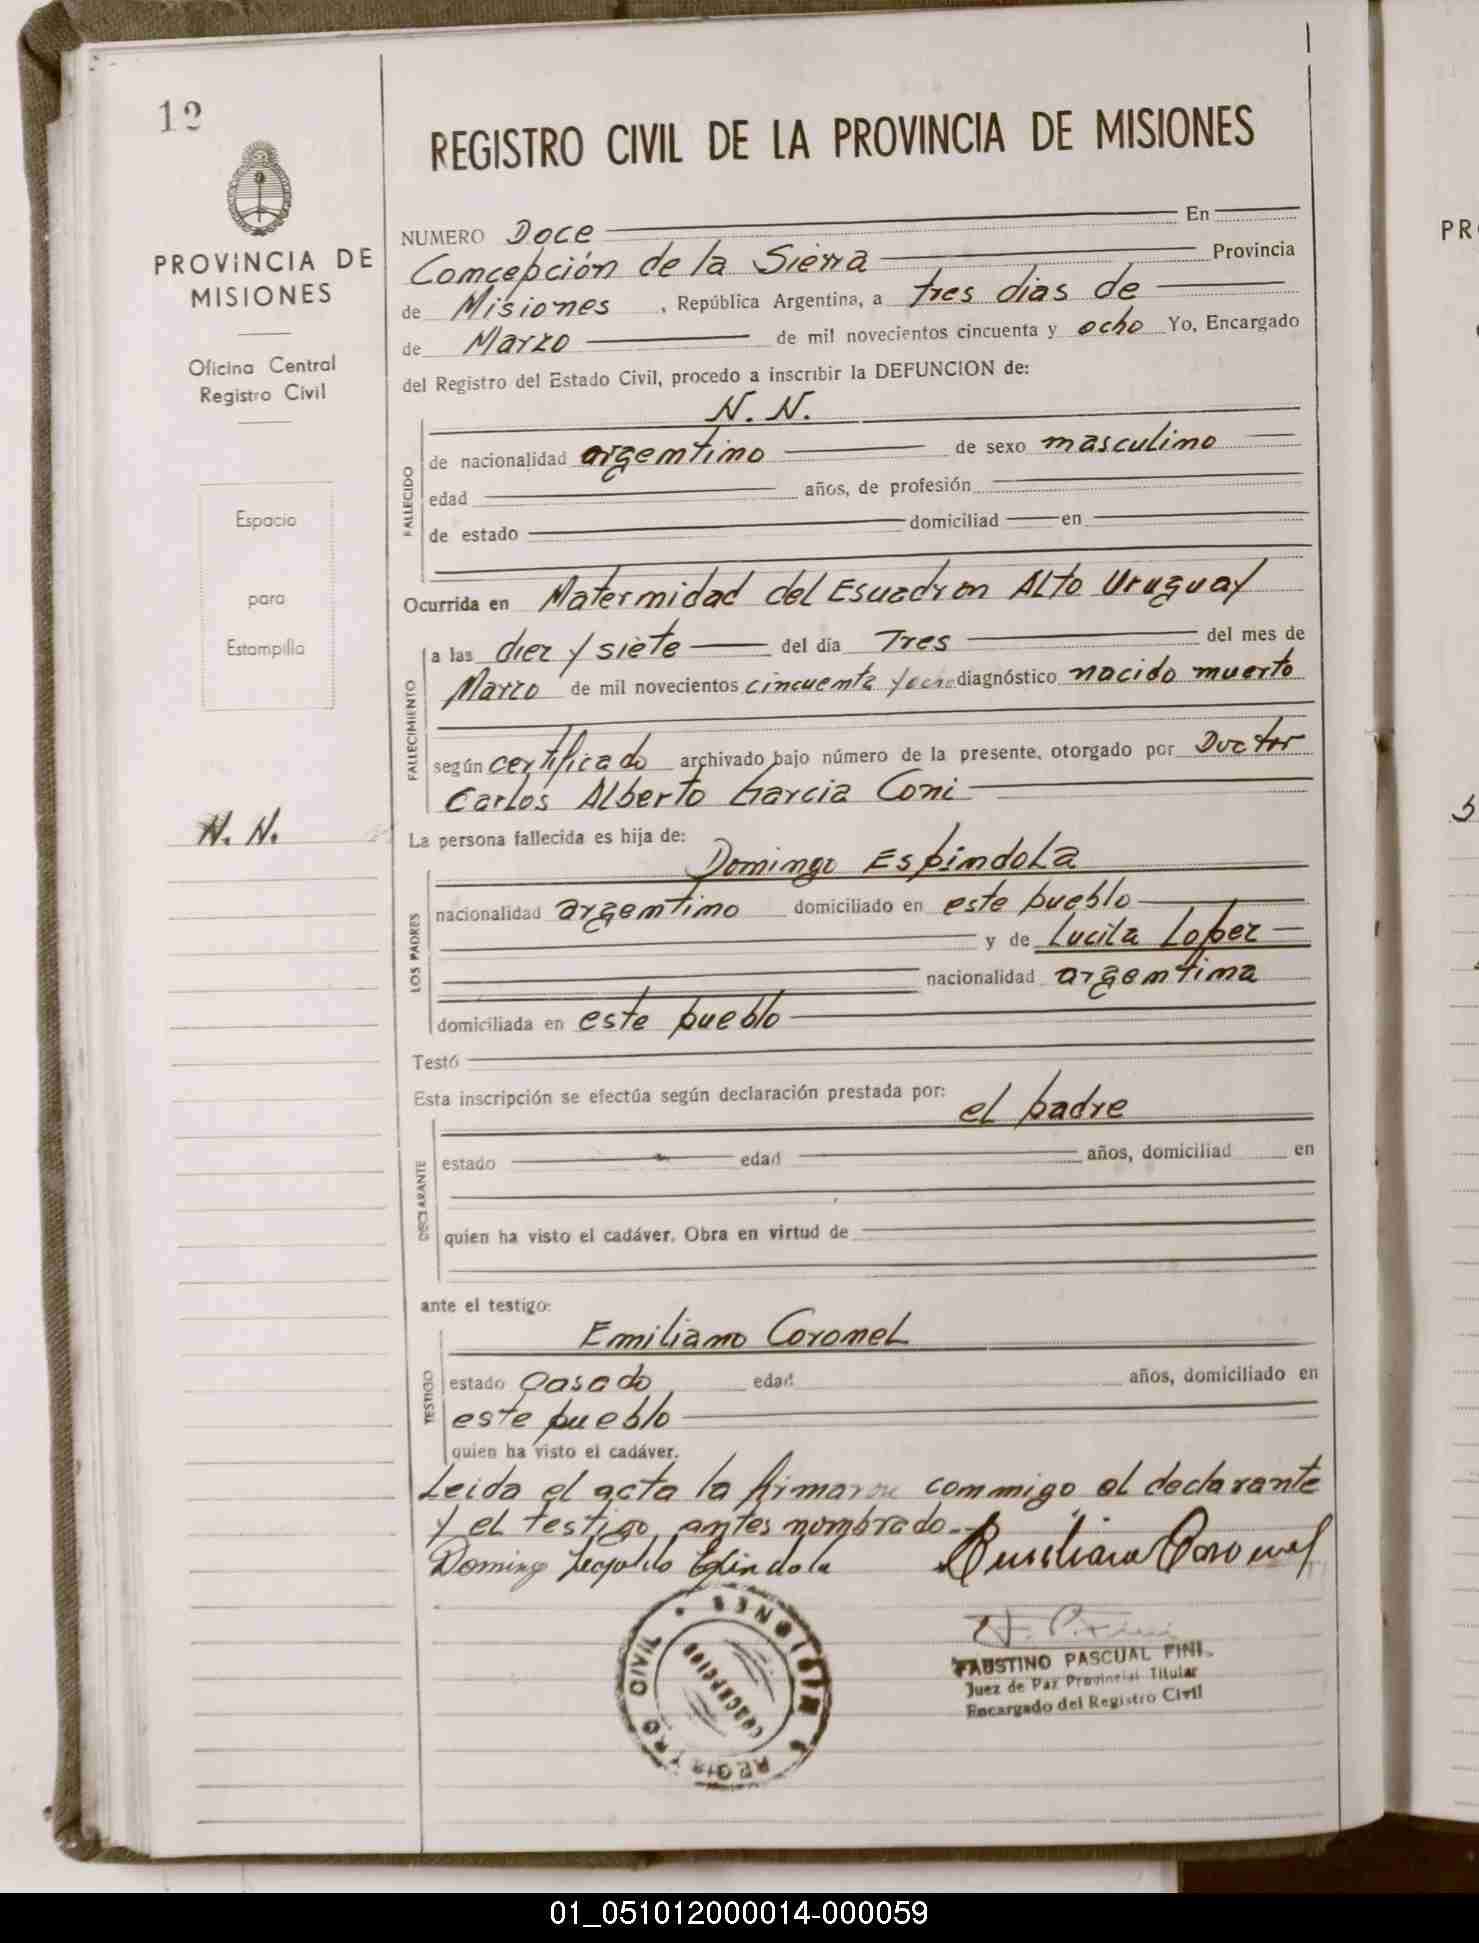 12
PROVINCIA DE
MISIONES
Oficina Central
Registro Civil
Espacio
para
Estampilla
N. N.
REGISTRO CIVIL DE LA PROVINCIA DE MISIONES
NUMERO Doce En
Concepción de la Sierra Provincia
de Misiones, República Argentina, a tres dias de
de Marzo de mil novecientos cincuenta y ocho Yo, Encargado
del Registro del Estado Civil, procedo a inscribir la DEFUNCION de:
N. N.
FALLECIDO
de nacionalidad argentino de sexo masculino
edad años, de profesión
de estado domiciliad en
Ocurrida en Maternidad del Escuadron Alto Uruguay
FALLECIMIENTO
a las diez y siete del día Tres del mes de
Marzo de mil novecientos cincuenta y ocho diagnóstico nacido muerto
según certificado archivado bajo número de la presente, otorgado por Doctor
Carlos Alberto Garcia Coni
La persona fallecida es hija de:
Domingo Espindola
LOS PADRES
nacionalidad argentino domiciliado en este pueblo
y de Lucila Lopez
nacionalidad argentina
domiciliada en este pueblo
Testó
Esta inscripción se efectúa según declaración prestada por:
el padre
DECLARANTE
estado edad años, domiciliad en
quien ha visto el cadáver. Obra en virtud de
ante el testigo:
Emiliano Coronel
TESTIGO
estado Casado edad años, domiciliado en
este pueblo
quien ha visto el cadáver.
Leida el acta la firmaron conmigo el declarante
y el testigo antes nombrado.-
Domingo Espindola Emiliano Coronel
FAUSTINO PASCUAL FINI
Juez de Paz Provincial Titular
Encargado del Registro Civil
REGISTRO CIVIL MISIONES
CONCEPCION
PR
01_051012000014-000059